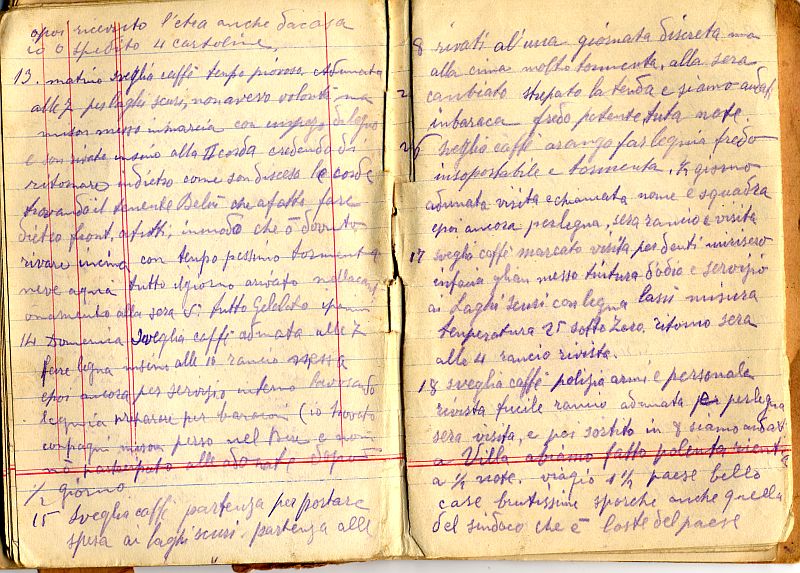 epoi ricevuto l'etra anche da casa
io ò spedito 4 cartoline.
13. matina sveglia caffè tempo piovoso Adunata
alle 7 per laghi scuri, non avevo volontà ma
misон messo in marcia con un pezzo di legno
e son rivato insino alla II corda credendo di
ritornare indietro come son disceso le corde
trovando il tenente Belsi che afatti fare
dietro front, atutti, in modo che ò dovuto
rivare in cima con tempo pessimo tormenta
neve aqua tutto il giorno arivato nell
alla sera si tutto Gelolato
14 Domenica sveglia caffè adunata alle 7
fare legna insino alle 10 rancio messa
epoi ancora per servizio interno lavorando
segnia preparare per baraconi (io trovato
compagni perso nel e non
nò partecipato alle adonate dopo
1/2 giorno
15 sveglia caffè partenza per portare
spesa ai laghi scuri. partenza alle
8 rivati al'una giornata discreta ma
alla cima molto tormenta, alla sera
cambiato strepato la tenda e siamo andati
inbaraca fredo potente tuta note.
26 sveglia caffè arango far legnia fredo
insoportabile e tormenta. 1/2 giorno
adunata visita e chiamata nome e squadra
epoi ancora perlegna, sera rancio e visita
17 sveglia caffè marcato visita per denti mirisero
infacia gliàn messo tintura dodio e servizio
ai Laghi scuri con legna lassi misura
temperatura 25 sotto Zero, ritorno sera
alle 4 rancio rivista.
18 sveglia caffè polizia armi e personale
rivista fucile rancio adunata per perlegna
sera visita, e poi sortito in 8 siamo andati
a Villa abiamo fatto polenta rient
a 1/2 note. viagio 1 1/2 paese bello
case brutissime sporche anche quella
del sindaco che è loste del paese